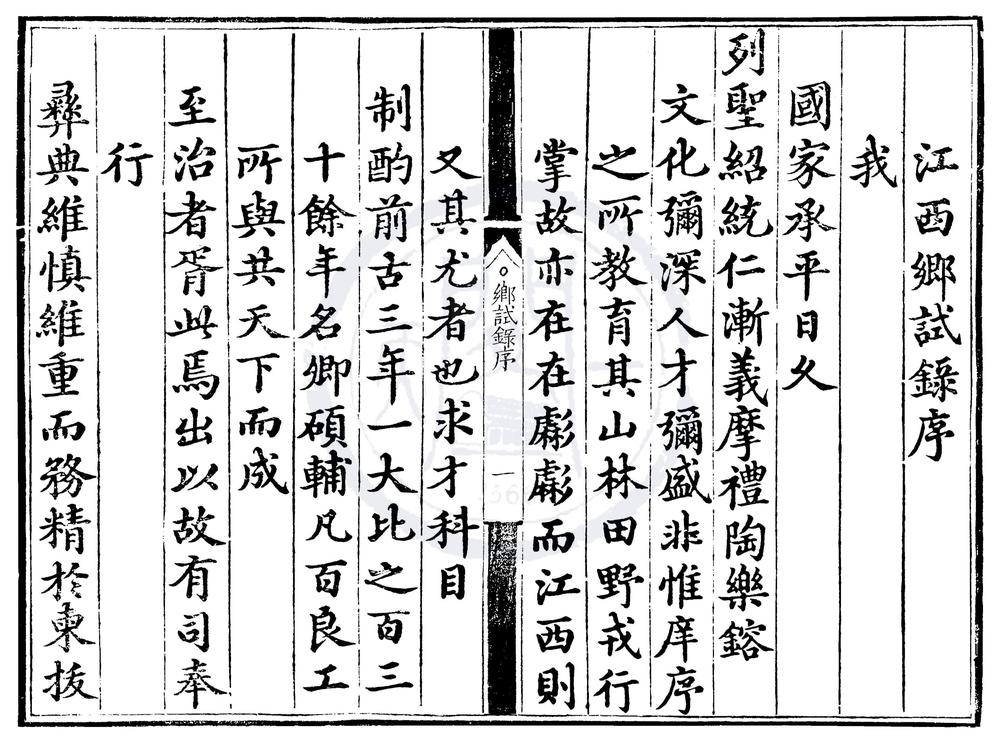 江西鄉試錄序
我
國家承平日久
列聖紹統仁漸義摩禮陶樂鎔
文化彌深人才彌盛非惟庠序
之所教育其山林田野戎行
掌故亦在在彪彪而江西則
鄉試錄序
一
又其尤者也求才科目
制酌前古三年一大比之百三
十餘年名卿碩輔凡百良工
所與共天下而成
至治者胥此焉出以故有司奉
行
彝典維慎維重而務精於柬拔